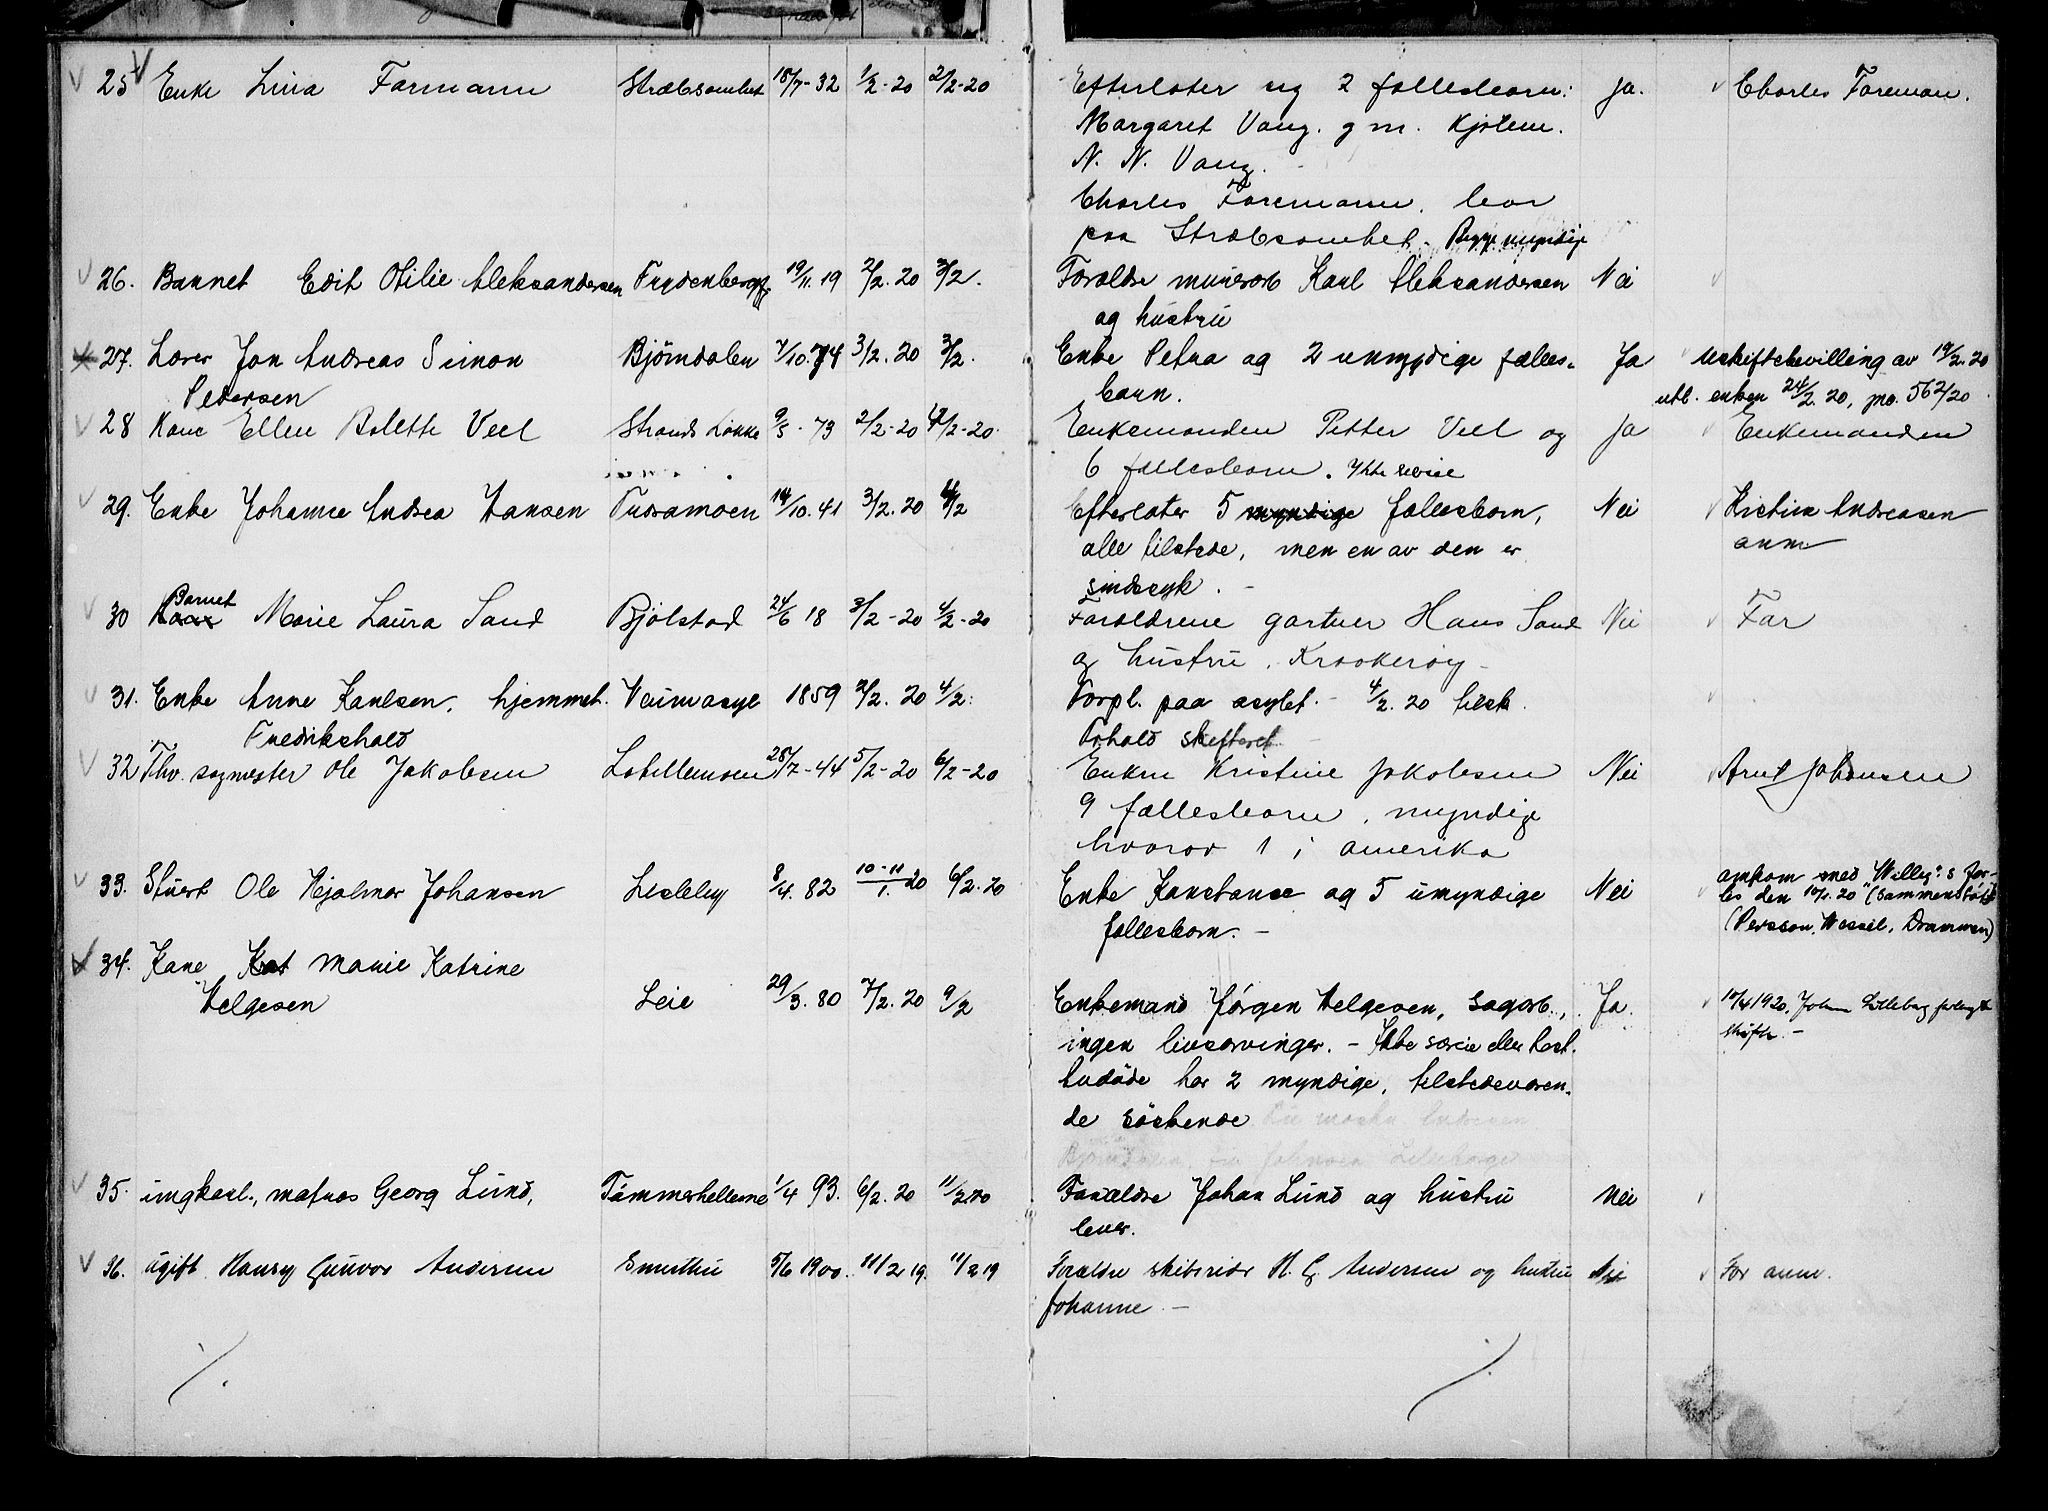 25 Enke Lina Farmann Stræbsomhet 18/7-32 1/2-20 2/2-20 Efterlater sig 2 fællesbarn: Ja. Charles Foreman.
Margaret Vang. g m. Kjølen.
N. N. Vang.
Charles Foremann. bor
paa Stræbsomhet. Begge myndige
26. Barnet Edit Otilie Aleksandersen Frydenberg 19/11 19 2/2. 20 3/2. Forældre murerarb Karl Aleksandersen Nei
og hustru
27. Lærer Jon Andreas Simon Björndalen 7/10. 74 3/2. 20 3/2. Enke Petra og 2 unmydige fælles- Ja Uskiftebevilling av 19/2. 20
Pedersen barn. utl. enken 24/2. 20, jno. 562/20
28 Kone Ellen Bolette Veel Strands Løkke 9/5 - 73 2/2-20 4/2-20. Enkemanden Petter Veel og Ja Enkemanden
6 fællesbarn. Ikke særeie
29. Enke Johanne Andrea Hansen Tudsamoen 14/10. 41 3/2. 20 4/2 Efterlater 5 myndige fællesbarn, Nei Kristian Andreasen
alle tilstede, men en av dem er anm
sindssyk. -
30 Barnet Marie Laura Sand Bjölstad 24/6 18 3/2-20 4/2-20 Forældrene gartner Hans Sand Nei Far
og hustru. Kraakerøy -
31. Enke Anne Karlsen. hjemmeh. Veumasyl 1859 2/2. 20 4/2. Forpl. paa asylet. - 4/2. 20 tilsk.
Fredrikshald Frhald skifteret. -
32 Fhv. sagmester Ole Jakobsen Lobillemoen 28/7-44 5/2-20 6/2-20 Enken Kristine Jakobsen Nei Arnt Johansen
9 fællesbarn, myndige
hvorav 1 i amerika
33. Stuert Ole Hjalmar Johansen Lisleby 8/4. 82 10-11/1. 20 6/2. 20 Enke Konstanse og 5 umyndige Nei omkom med "Willy"s for-
fællesbarn. - lis den 10/1. 20 (Sammenstöt
(Persson, Wessel, Drammen)
34. Kone Kat Marie Katrine
Helgesen Leie 29/3. 80 7/2. 20 9/2 Enkemand Jörgen Helgesen, sagarb., Ja. 10/4 1920. Johan Lilleborg forlangt
ingen livsarvinger. - Ikke særeie eller test. skifte. -
Avdöde har 2 myndige, tilstedeværen-
de söskende
35. ungkarl., matros Georg Lund, Tömmerhellerne 1/4 93. 6/2. 20 11/2.20 Forældre Johan Lund og hustru Nei
lever.
36. ugift Hansy Gunvor Andersen Smertu 5/6 1900. 11/2 19. 11/2 19 Forældre skibsreder H. G. Andersen og hustru Nei Far anm.
Johanne -